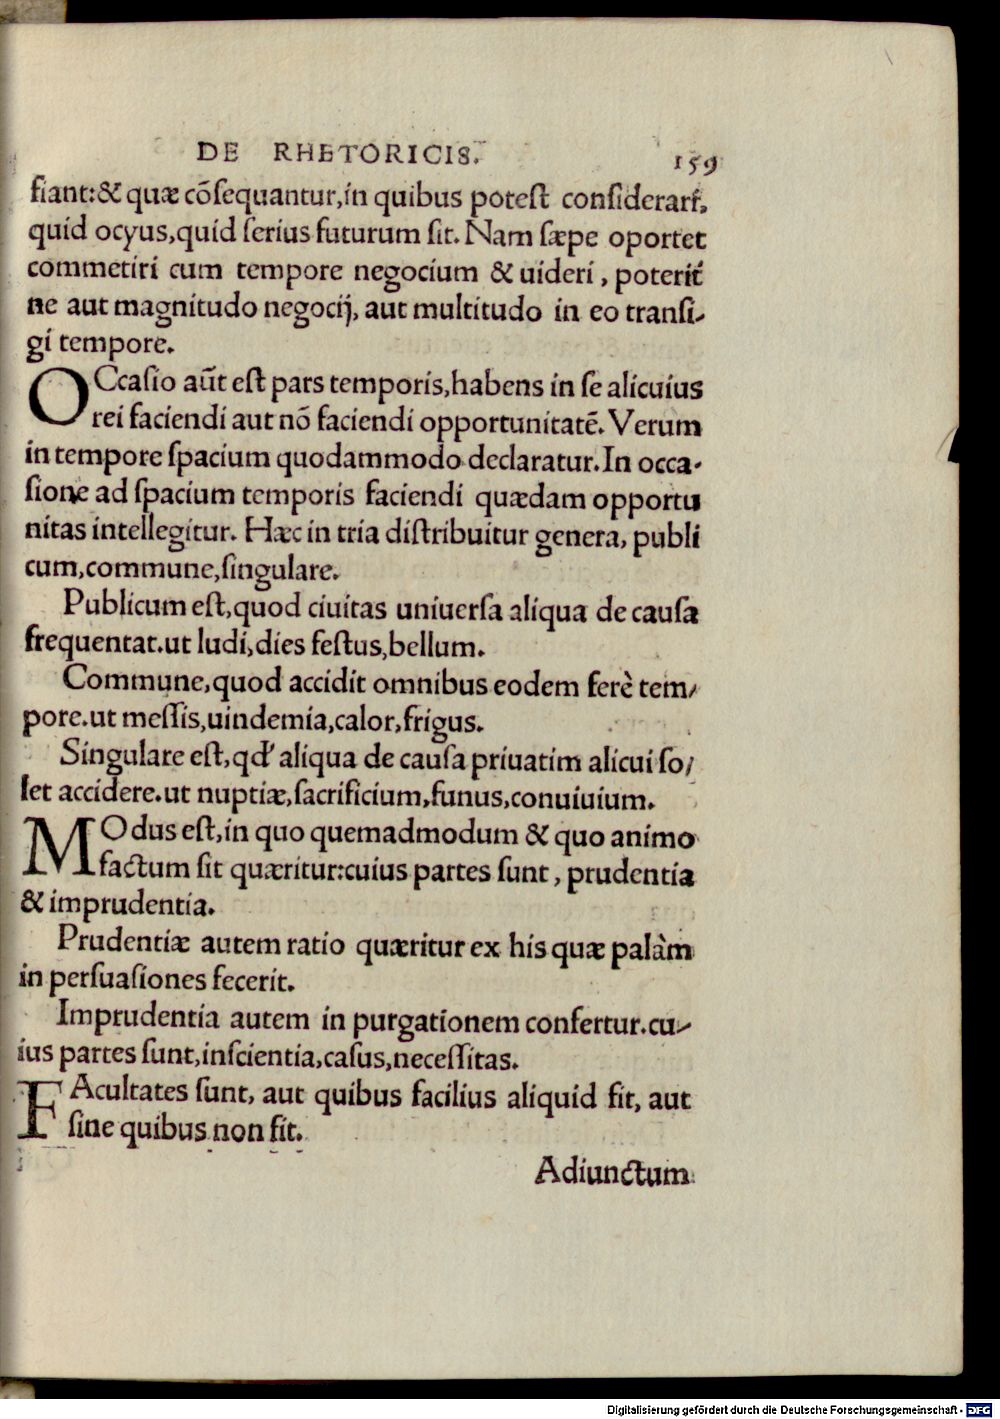 DE RHETORICIS. 159
fiant:& quæ cõsequantur,in quibus potest considerari,
quid ocyus,quid serius futurum sit. Nam sæpe oportet
commetiri cum tempore negocium & uideri, poterit
ne aut magnitudo negocij, aut multitudo in eo transi-
gi tempore.
OCcasio aũt est pars temporis,habens in se alicuius
rei faciendi aut nõ faciendi opportunitatẽ. Verum
in tempore spacium quodammodo declaratur. In occa-
sione ad spacium temporis faciendi quædam opportu
nitas intellegitur. Hæc in tria distribuitur genera, publi
cum,commune,singulare.
Publicum est,quod ciuitas uniuersa aliqua de causa
frequentat.ut ludi,dies festus,bellum.
Commune,quod accidit omnibus eodem ferè tem-
pore.ut messis,uindemia,calor,frigus.
Singulare est,qd' aliqua de causa priuatim alicui so-
let accidere.ut nuptiæ,sacrificium,funus,conuiuium.
MOdus est,in quo quemadmodum & quo animo
factum sit quæritur:cuius partes sunt, prudentia
& imprudentia.
Prudentiæ autem ratio quæritur ex his quæ palàm
in persuasiones fecerit.
Imprudentia autem in purgationem confertur.cu-
ius partes sunt,inscientia,casus,necessitas.
FAcultates sunt, aut quibus facilius aliquid fit, aut
sine quibus non fit.
Adiunctum
Digitalisierung gefördert durch die Deutsche Forschungsgemeinschaft - DFG